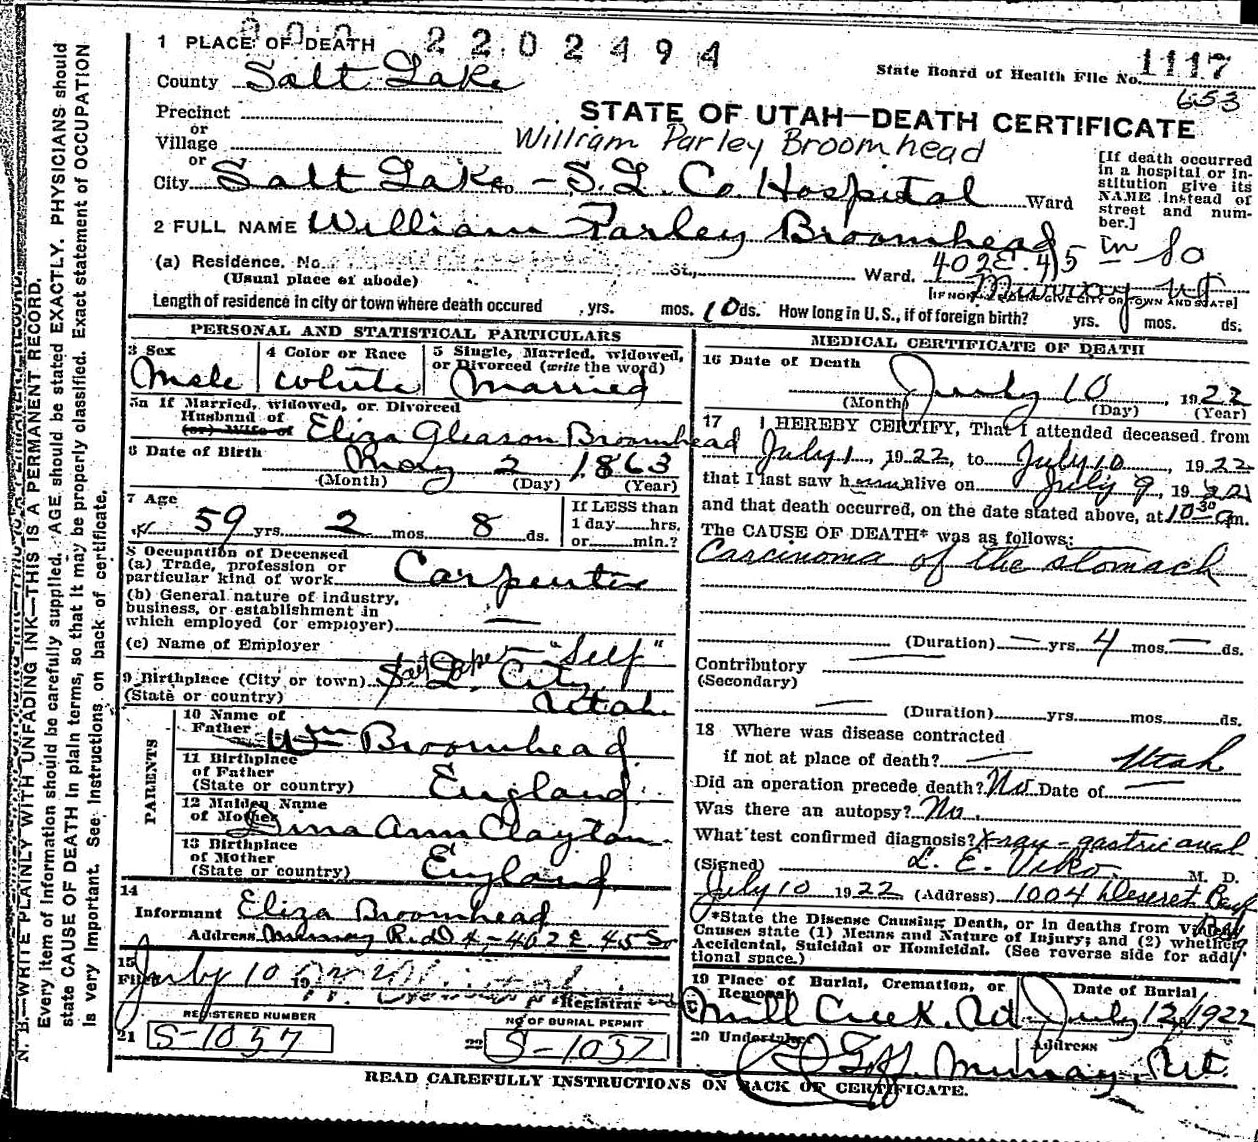 2202494
1 PLACE OF DEATH
State Board of Health File No. 1117
653
County Salt Lake
STATE OF UTAH—DEATH CERTIFICATE
Precinct
or
Village
or
William Parley Broomhead
City Salt Lake No. - S. L. Co. Hospital Ward
[If death occurred in a hospital or institution give its NAME instead of street and number.]
2 FULL NAME William Parley Broomhead
(a) Residence. No. St., Ward. 402 E. 45 So
(Usual place of abode)
Murray Ut
Length of residence in city or town where death occured yrs. mos. 10 ds. How long in U. S., if of foreign birth? yrs. mos. ds.
PERSONAL AND STATISTICAL PARTICULARS
3 Sex
Male
4 Color or Race
White
5 Single, Married, widowed, or Divorced (write the word)
Married
5a If Married, widowed, or Divorced
Husband of
(or) Wife of
Eliza Gleason Broomhead
6 Date of Birth
May 2 1863
(Month) (Day) (Year)
7 Age
59 yrs. 2 mos. 8 ds.
If LESS than
1 day hrs.
or min.?
8 Occupation of Deceased
(a) Trade, profession or
particular kind of work Carpenter
(b) General nature of industry,
business, or establishment in
which employed (or employer) —
(c) Name of Employer "Self"
9 Birthplace (City or town) S. L. City
(State or country) Utah
PARENTS
10 Name of
Father Wm Broomhead
11 Birthplace
of Father
(State or country) England
12 Maiden Name
of Mother Dina Ann Clayton
13 Birthplace
of Mother
(State or country) England
14
Informant Eliza Broomhead
Address Murray R.D. 4 - 402 E. 45 So
15
Filed July 10 19
Registrar
REGISTERED NUMBER
21 S-1037
NO OF BURIAL PERMIT
22 S-1037
MEDICAL CERTIFICATE OF DEATH
16 Date of Death
July 10, 1922
(Month) (Day) (Year)
17 I HEREBY CERTIFY, That I attended deceased from
July 1, 1922, to July 10, 1922
that I last saw him alive on July 9, 1922
and that death occurred, on the date stated above, at 10 30 a.m.
The CAUSE OF DEATH* was as follows:
Carcinoma of the stomach
(Duration) — yrs. 4 mos. — ds.
Contributory —
(Secondary)
— (Duration) yrs. mos. ds.
18 Where was disease contracted
if not at place of death? — Utah
Did an operation precede death? No Date of —
Was there an autopsy? No.
What test confirmed diagnosis? X-ray - gastric anal
(Signed) L. E. Viko. M. D.
July 10 1922 (Address) 1004 Deseret Bank
Bldg
*State the Disease Causing Death, or in deaths from Violent
Causes state (1) Means and Nature of Injury; and (2) whether
Accidental, Suicidal or Homicidal. (See reverse side for additional space.)
19 Place of Burial, Cremation, or
Removal
Mill Creek, Ut
Date of Burial
July 12, 1922
20 Undertaker
Address
Murray, Ut.
READ CAREFULLY INSTRUCTIONS ON BACK OF CERTIFICATE.
N. B.—WRITE PLAINLY WITH UNFADING INK—THIS IS A PERMANENT RECORD.
Every item of information should be carefully supplied. AGE should be stated EXACTLY. PHYSICIANS should
state CAUSE OF DEATH in plain terms, so that it may be properly classified. Exact statement of OCCUPATION
is very important. See instructions on back of certificate.